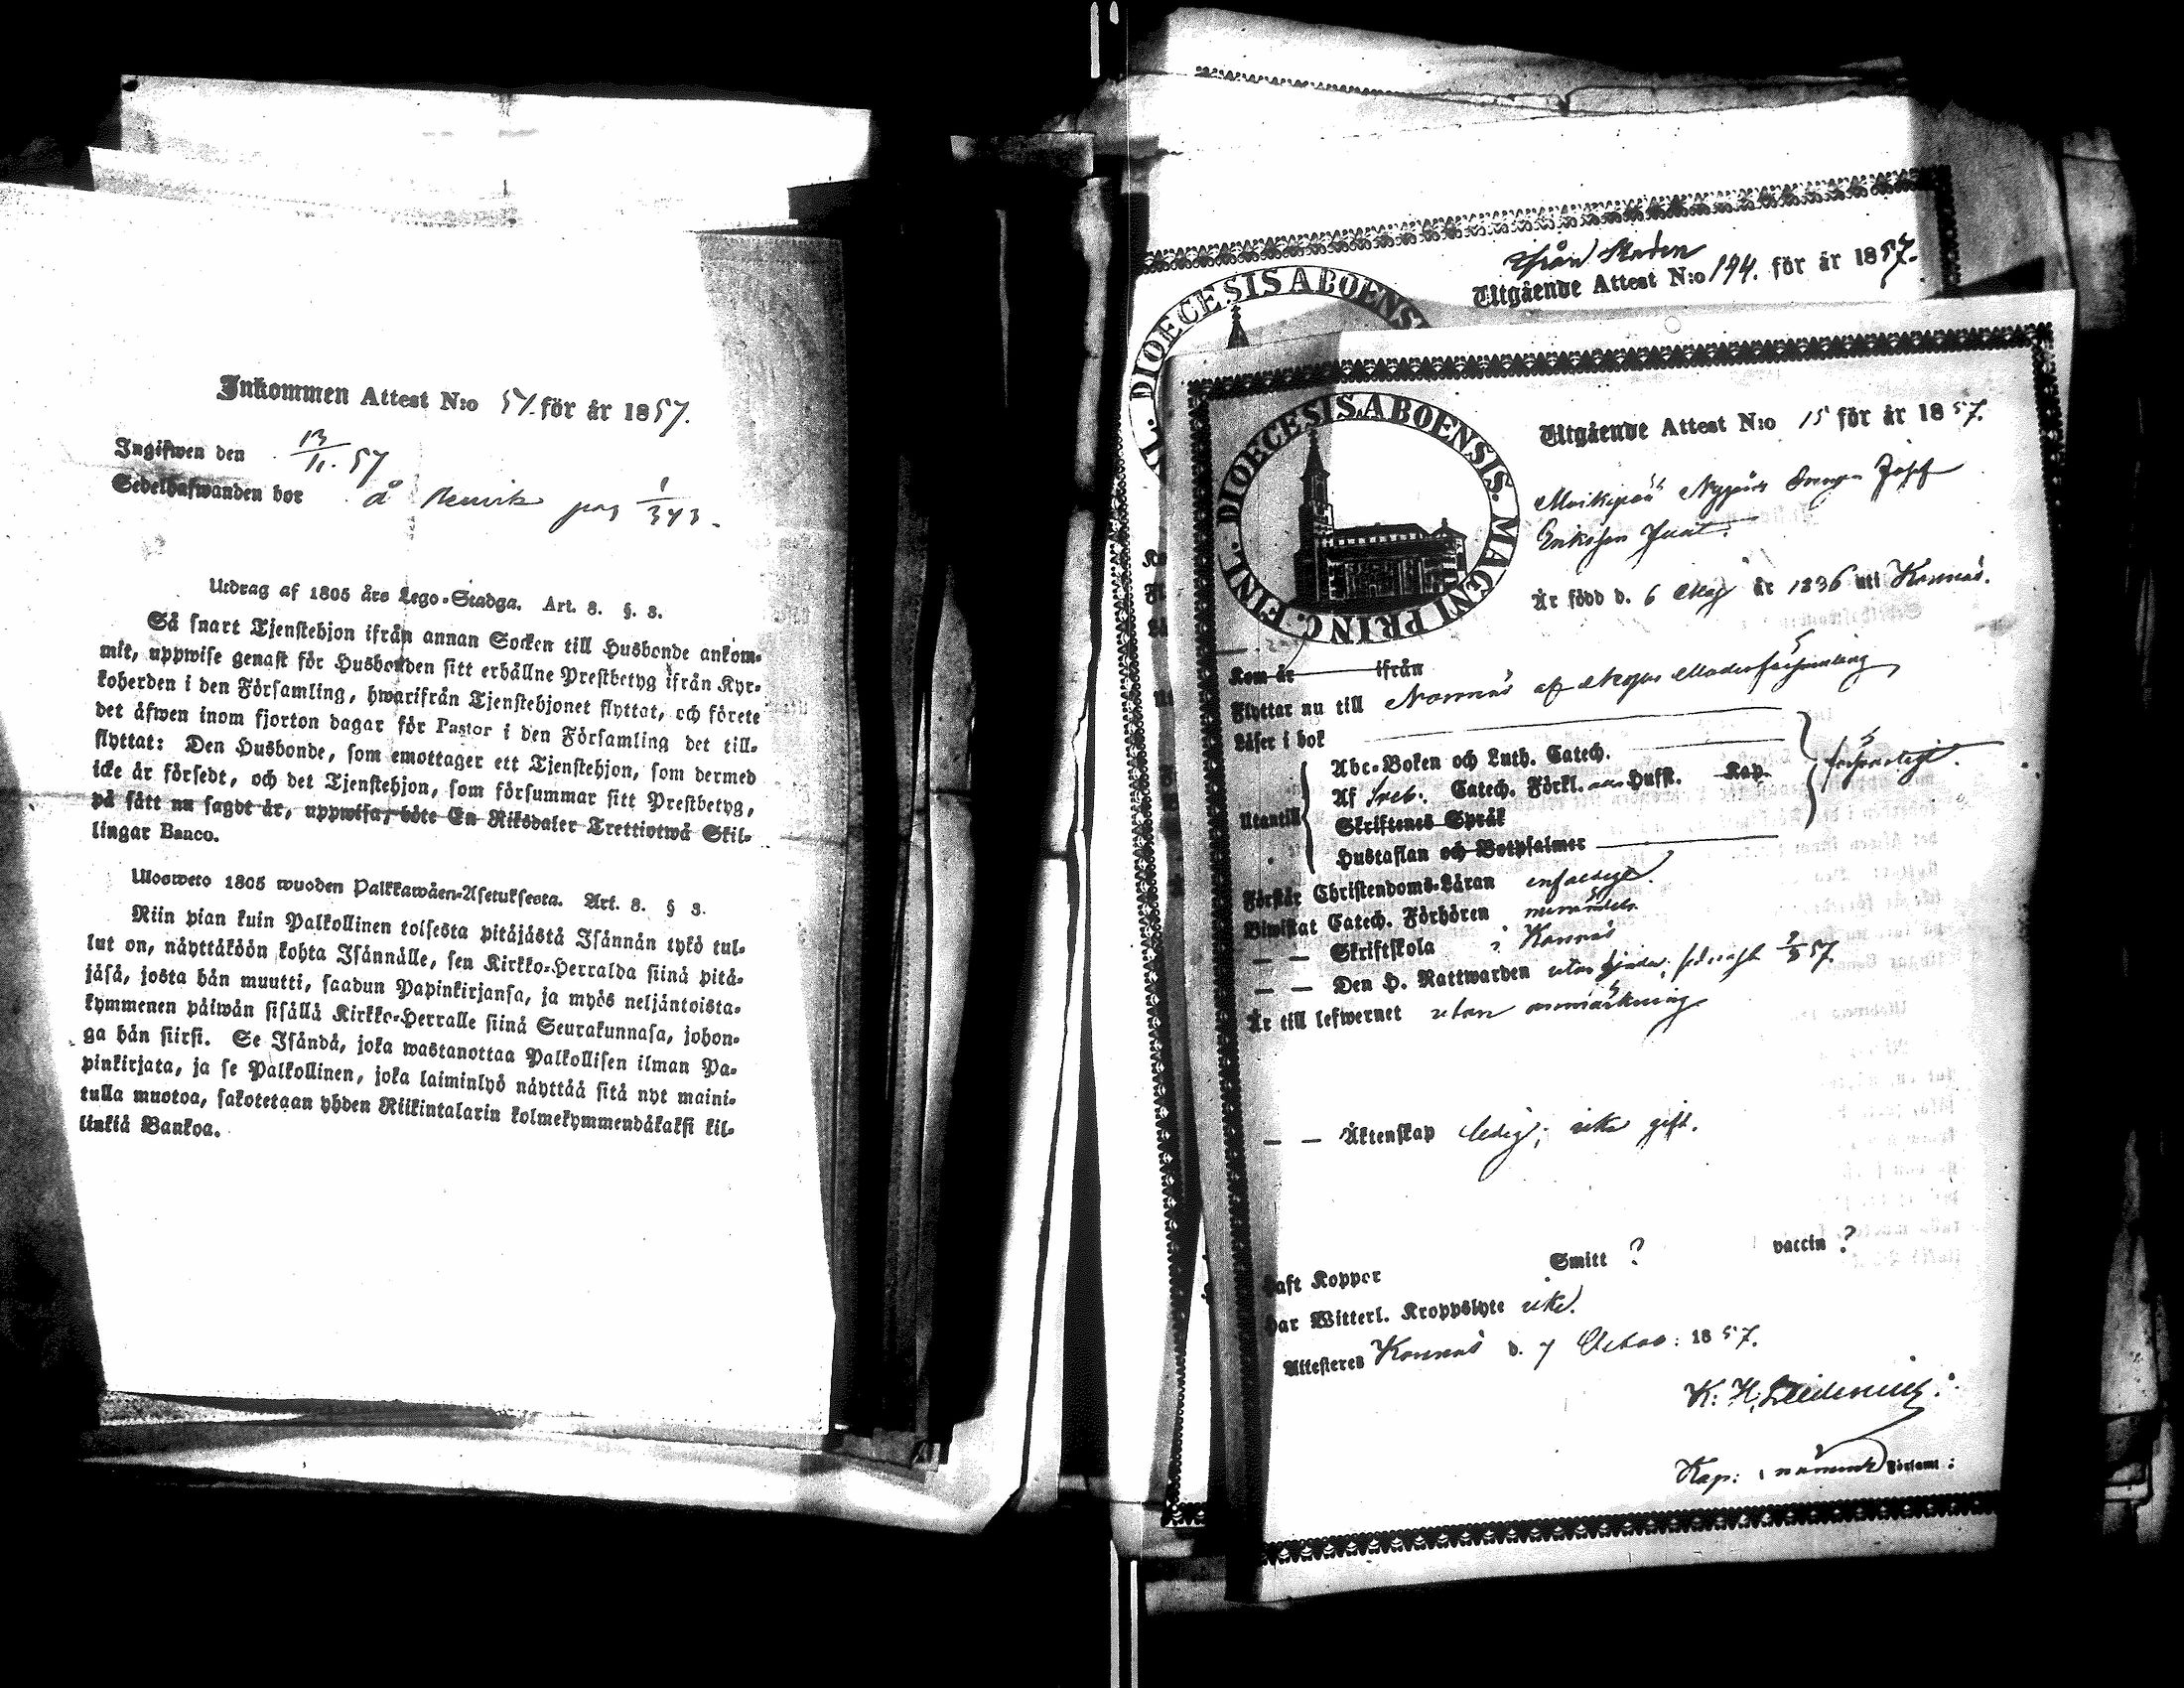 Inkommen Attest N:o 57. för år 1857.
Ingifwen den 13/11. 57
Sedelhafwanden bor å pag 1/343.
Utdrag af 1805 års Lego-Stadga. Art. 8. §. 3.
Så snart Tjenstehjon ifrån annan Socken till Husbonde ankom-
mit, uppwise genast för Husbonden sitt erhållne Prestbetyg ifrån Kyr-
koherden i den Församling, hwarifrån Tjenstehjonet flyttat, och förete
det äfwen inom fjorton dagar för Pastor i den Församling det till-
flyttat: Den Husbonde, som emottager ett Tjenstehjon, som dermed
icke är försedt, och det Tjenstehjon, som försummar sitt Prestbetyg,
på sätt nu sagdt är, uppwisa, böte En Riksdaler Trettiotwå Skil-
lingar Banco.
Ulosweto 1805 wuoden Palkkawäen-Asetuksesta. Art. 8. § 3.
Niin pian kuin Palkollinen toisesta pitäjästä Isännän tykö tul-
lut on, näyttäköön kohta Isännälle, sen Kirkko-Herralda siinä pitä-
jäsä, josta hän muutti, saadun Papinkirjansa, ja myös neljäntoista-
kymmenen päiwän sisällä Kirkko-Herralle siinä Seurakunnasa, johon-
ga hän siirsi. Se Isändä, joka wastanottaa Palkollisen ilman Pa-
pinkirjata, ja se Palkollinen, joka laiminlyö näyttää sitä nyt maini-
tulla muotoa, sakotetaan yhden Riikintalarin kolmekymmendäkaksi kil-
linkiä Bankoa.
Ifrån Staden
Utgående Attest N:o 194. för år 1857.
DIOECESIS ABOENS
DIOECESIS ABOENSIS. MAGNI PRINC. FINL.
Utgående Attest N:o 15 för år 1857.
Josef
Eriksson
Är född d. 6 Maj år 1836 uti Korsnäs.
Kom år ifrån
Flyttar nu till af Moderförsamling
Läser i bok
Abc-Boken och Luth. Catech.
Af Sveb. Catech. Förkl. Hufst. Kap.
Utantill
Skriftenes Språk
Hustaflan och Botpsalmer
försvarligt.
Förstår Christendoms-Läran enfaldigt.
Biwistat Catech. Förhören
— — Skriftskola i Korsnäs
— — Den H. Nattwarden 57
Är till lefwernet utan anmärkning
— — Äktenskap ledig; icke gift.
Haft Koppor Smitt ? vaccin ?
Har Witterl. Kroppslyte icke.
Attesteres Korsnäs d. 7 Octob: 1857.
K. H.
Kap: i nämnde Församl: